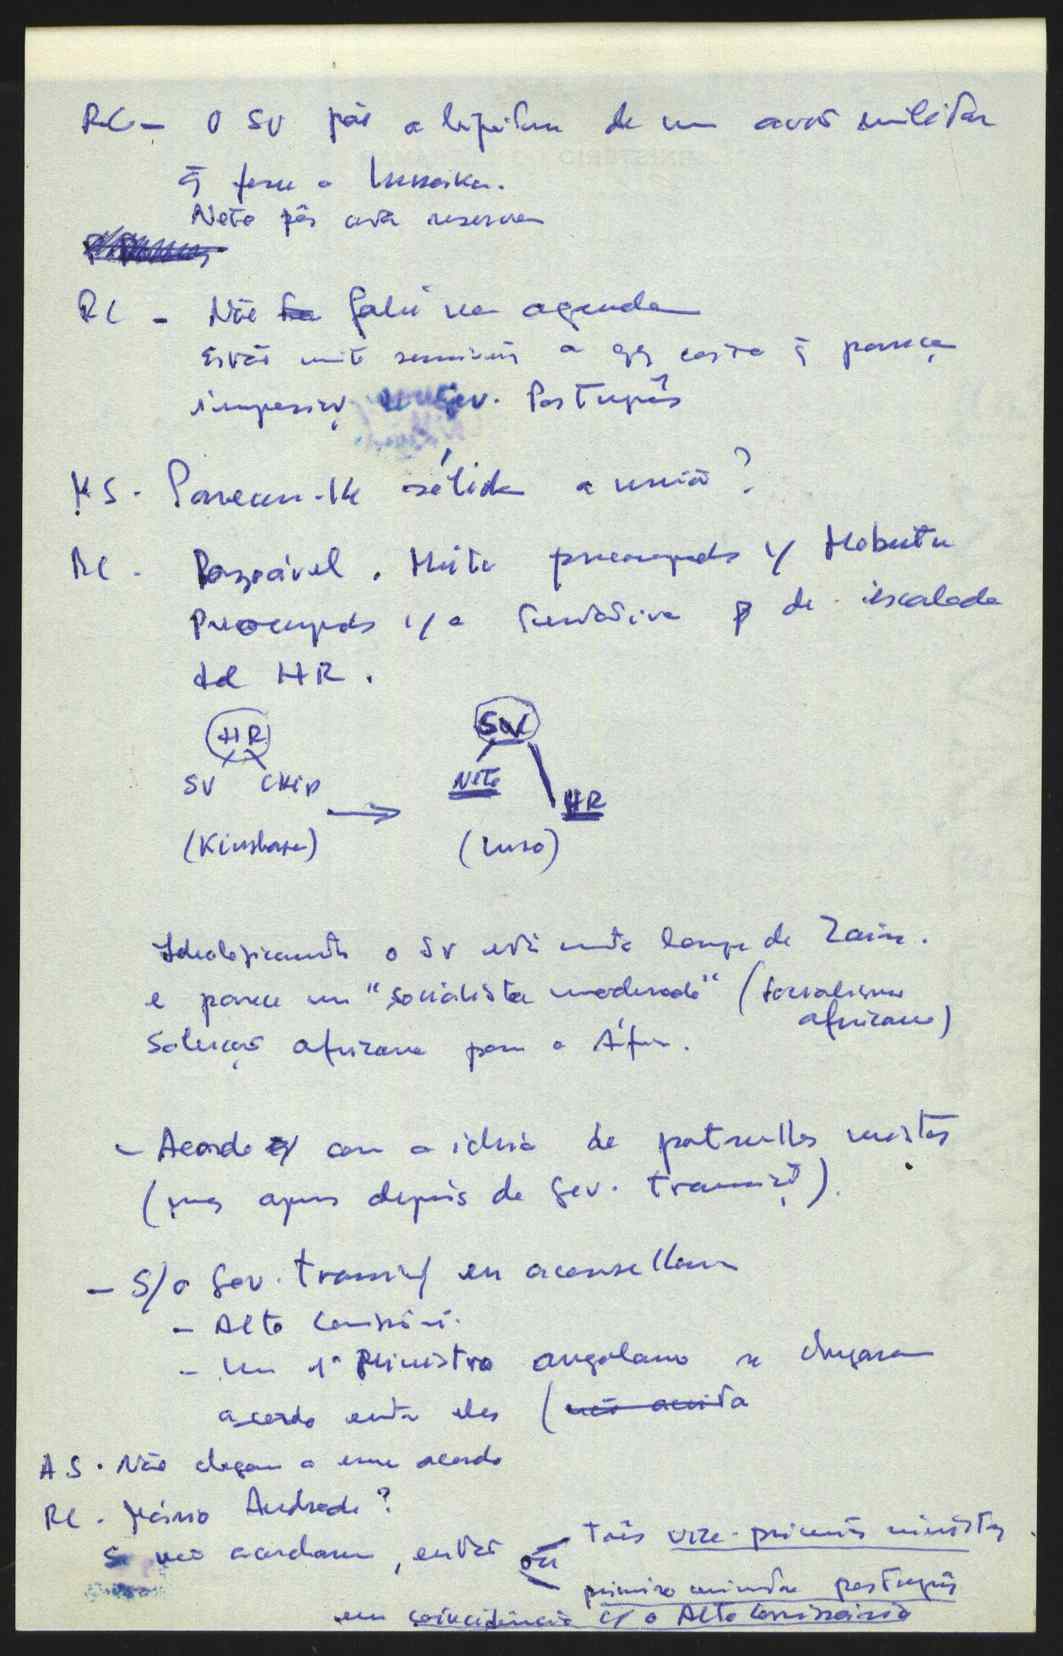 RC - O SV pôs a hipótese de um avião militar
q̃ fosse a Lusaka.
Neto pôs certa reserva
RC - Não falei na agenda
Estão mt sensíveis a qq coisa q̃ pareça
imposiç. Gov. Português
MS - Pareceu-lhe sólida a união?
RC - Razoável. Muito preocupado c/ Mobutu
Preocupado c/ a tentativa de escalada
do HR.
HR SV
SV CHIP Neto HR
(Kinshasa) (Luso)
Ideologicamente o SV está muito longe do Zaire.
e parece um "socialista moderado" (socialismo
africano)
Solução africana para a África.
- Acordo com a ideia de patrulhas mistas
(mas apenas depois do Gov. transição).
- S/ o Gov. transiç. eu aconselharia
- Alto Comissário.
- Um 1º Ministro angolano se chegarem a
acordo entre eles (não aceita
AS - Não chegam a esse acordo
RC - Mário Andrade?
Se não acordarem, então ou três vice-primeiros ministros
primeiro ministro português
em coincidência c/ o Alto Comissário